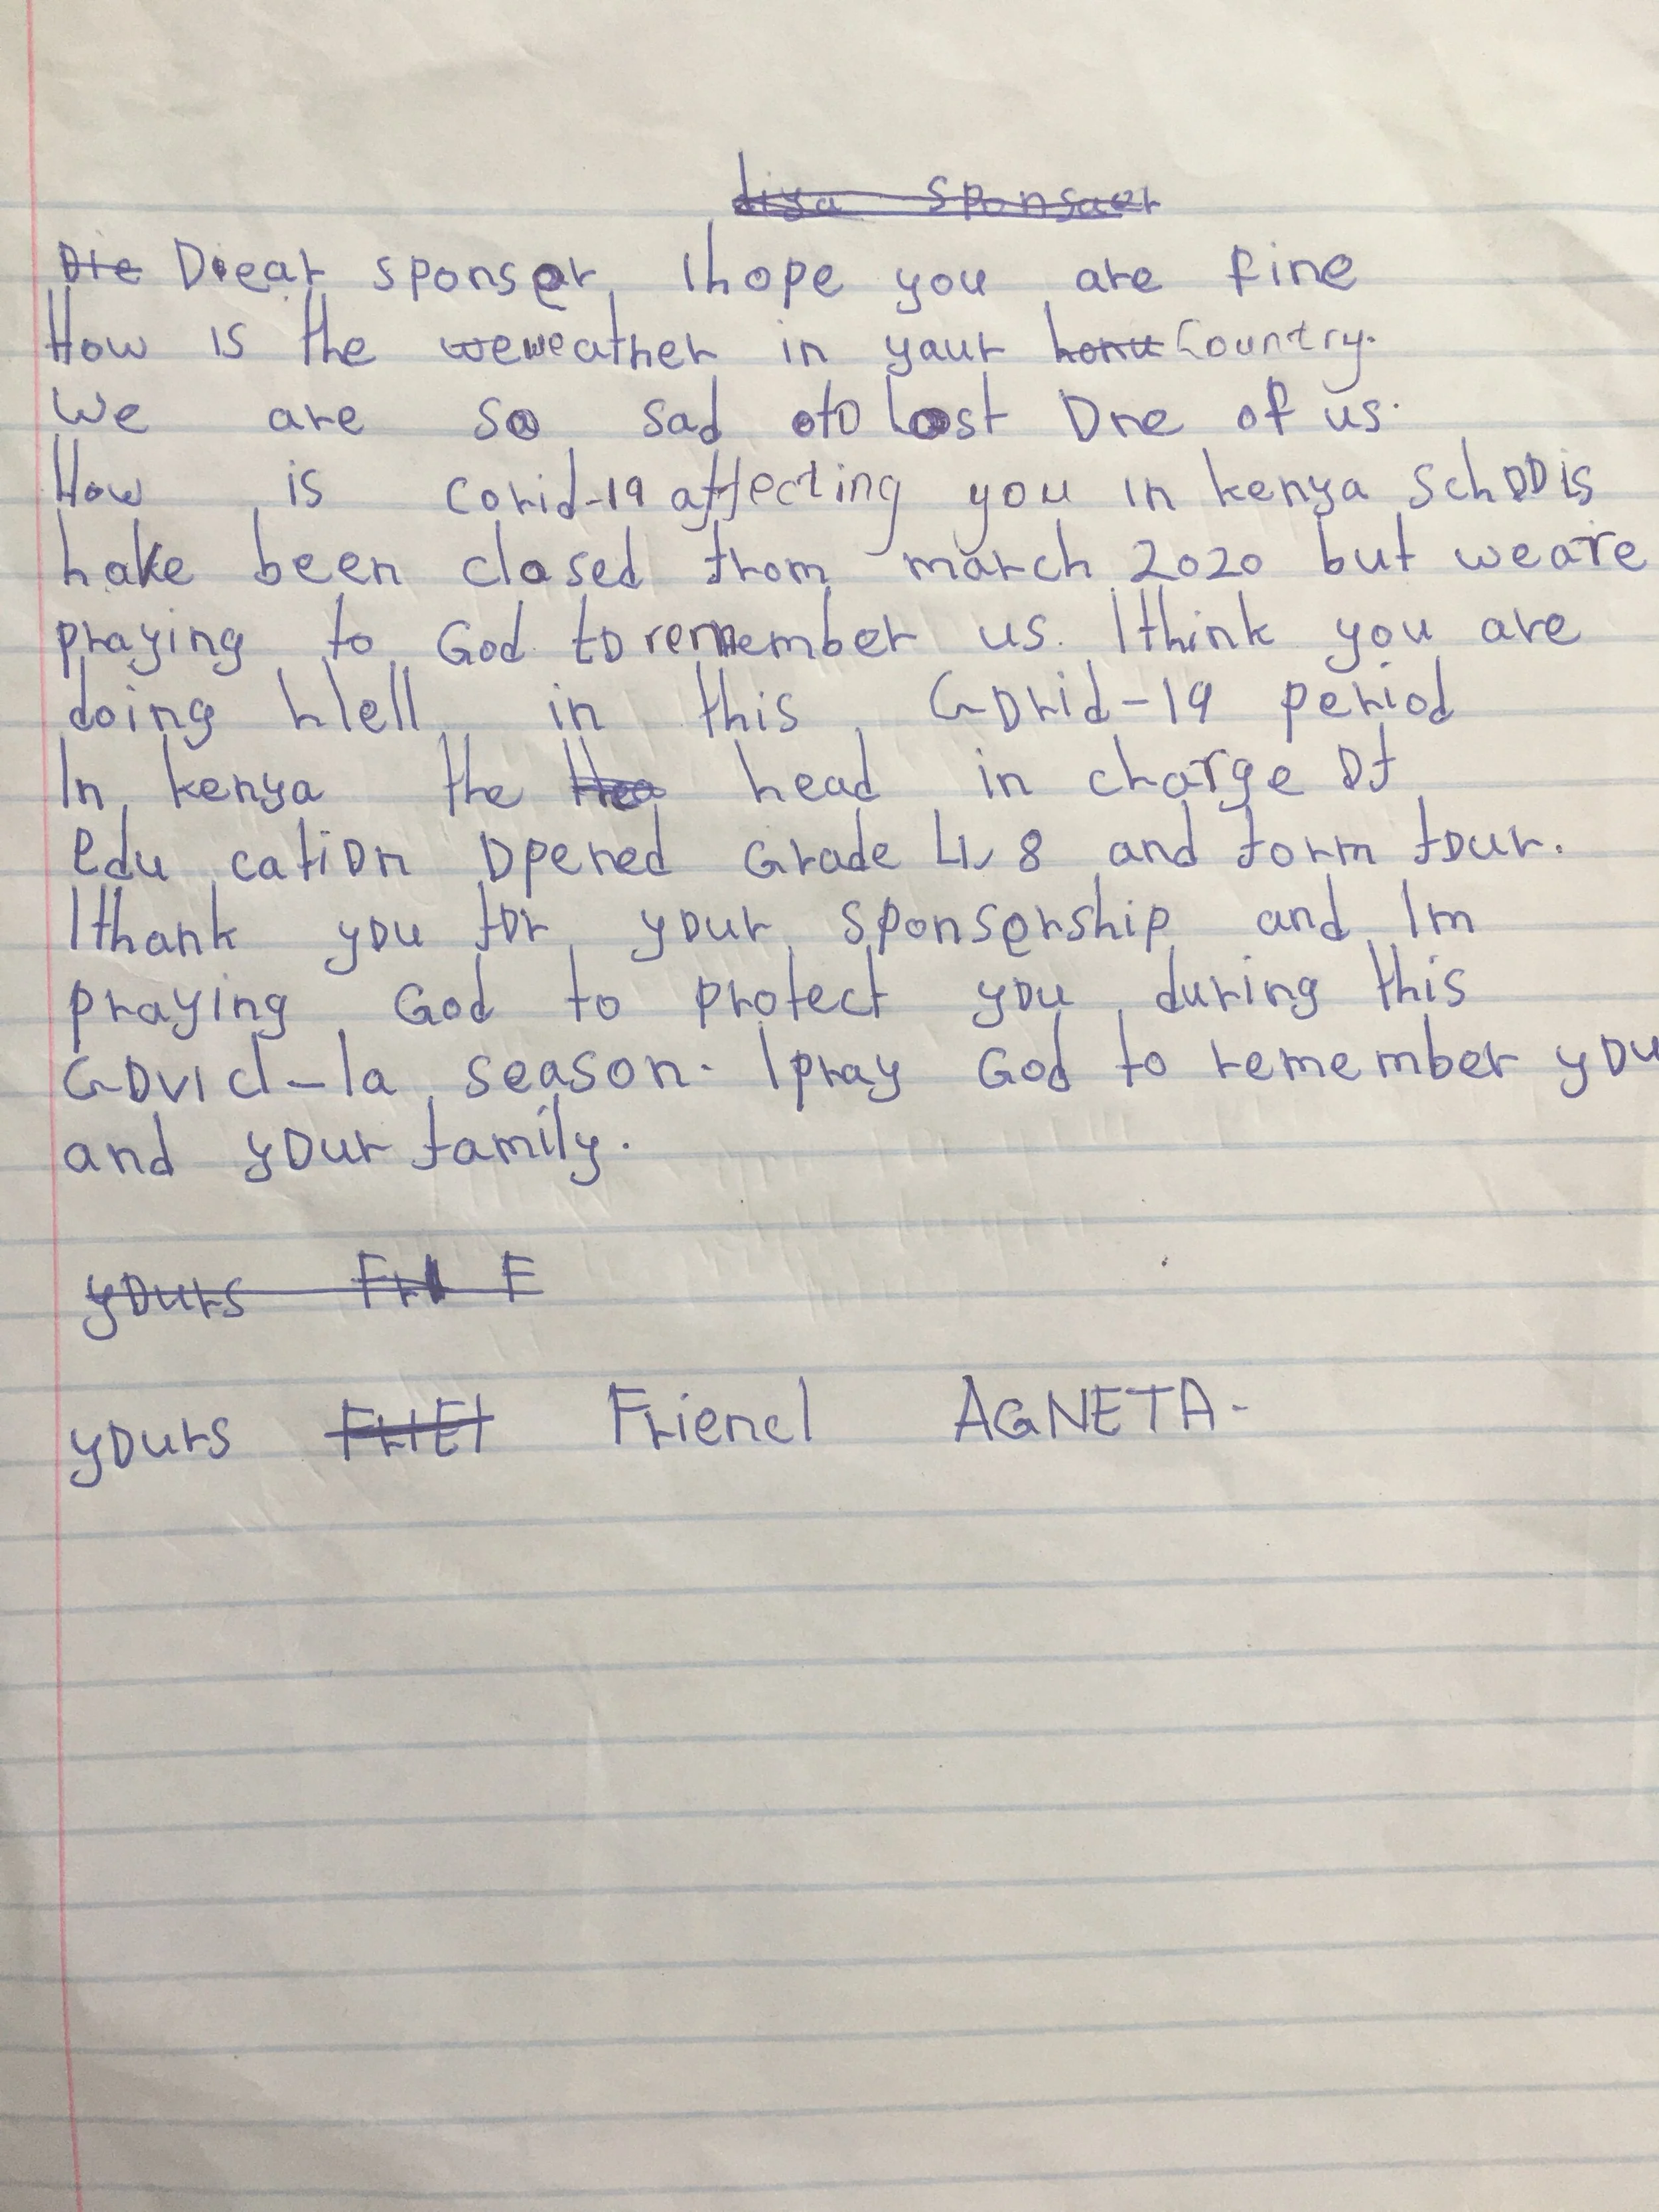 diya sponsaer
Die Dieat sponser, Ihope you are fine
How is the weweather in yaur home Country.
We are so sad oto lost One of us.
How is Covid-19 affecting you in kenya schools
hake been closed from march 2020 but weare
praying to God to remember us. Ithink you are
doing Well in this Covid-19 period
In kenya the Hea head in charge of
edu cation opened Grade 4, 8 and form four.
Ithank you for your sponsership and Im
praying God to protect you during this
Covid-1a season. Ipray God to remember you
and your family.
yours Fri E
yours FriEl Friend AGNETA-